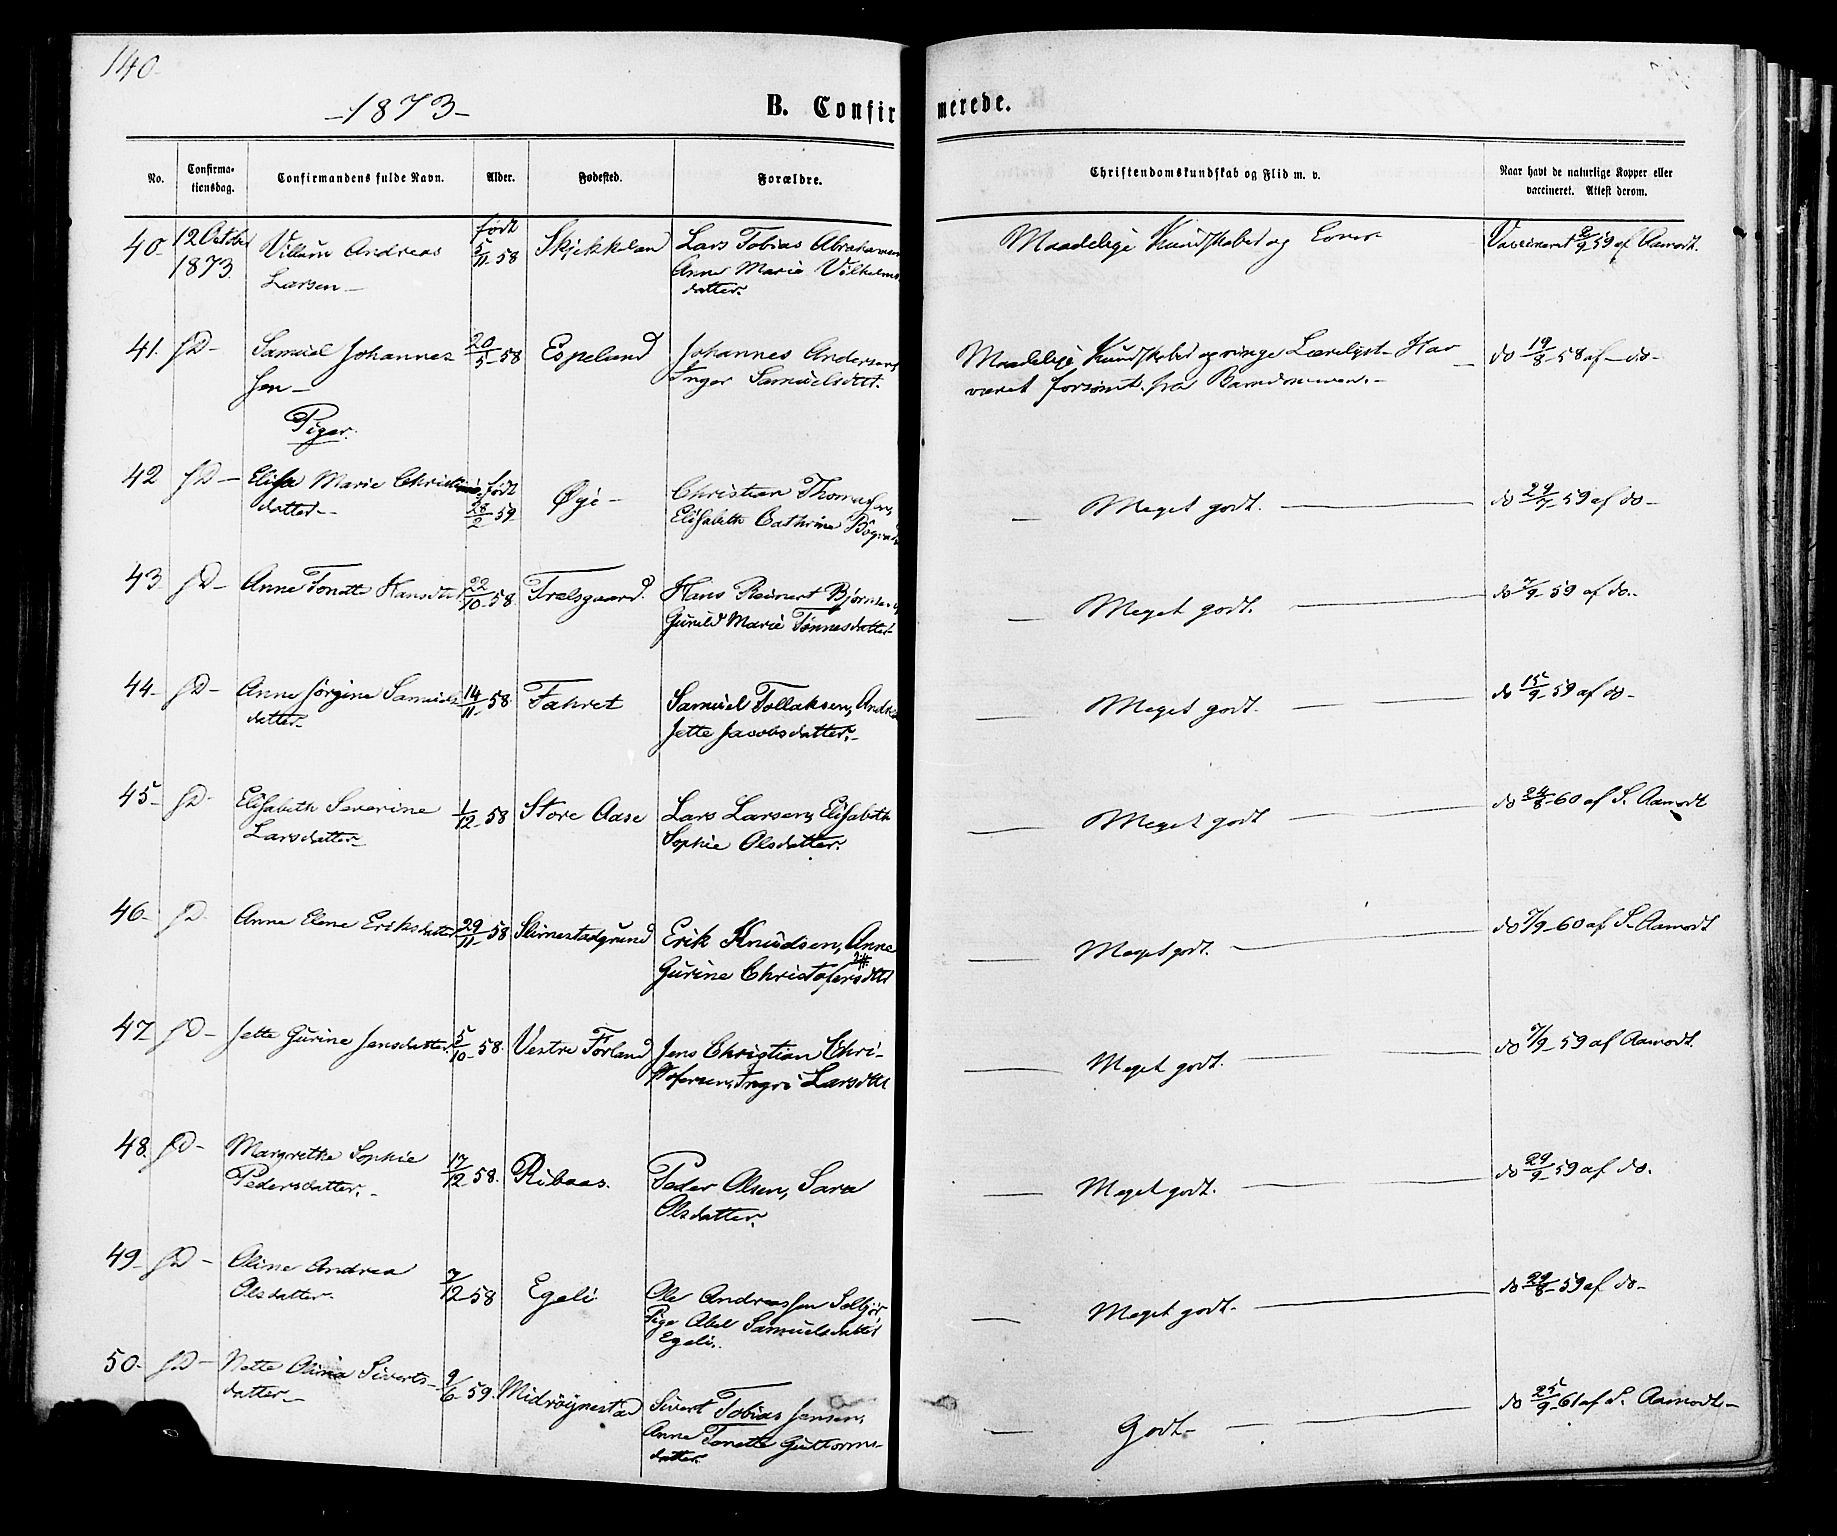 140
-1873-
B. Confirmerede.
No.
Confirmationsdag.
Confirmandens fulde Navn.
Alder.
Fødested.
Forældre.
Christendomskundskab og Flid m. v.
Naar havt de naturlige Kopper eller vaccineret. Attest derom.
40- 12 October født Skjekkeland Lars Tobias Abrahamsen Maadelige Kundskaber og Evner Vaccineret 2/9 59 af Aamodt.
1873. Villum Andreas 5/11-58 Anne Marie Vilhelms
Larsen- datter.
41. fD- Samuel Johannes 20/5-58 Espeland Johannes Andersen, Maadelige Kundskaber og ringe Lærelyst- Har do 19/8-58 af do-
sen- Inger Samuelsdatt. været forsømt fra Barndommen.-
Piger.
42 fD- Elisa Marie Christians født Øye- Christian Thomassen, Meget godt. do 29/9-59 af do-
datter- 28/2-59 Elisabeth Cathrine
43 fD- Anne Tonette Hansdtt 22/10-58 Trælsgaard. Hans Reinert Bjørnsen, Meget godt. do 7/9-59 af do.-
Gunild Marie Tønnesdatter-
44- fD- Anne Jørgine Samuels 14/11-58 Fahret Samuel Tollaksen, Meget godt. do 15/9-59 af do-
datter- Jette Jacobsdatter.-
45- fD- Elisabeth Severine 1/12-58 Store Aase Lars Larsen, Elisabeth Meget godt do 24/8-60 af S. Aamodt
Larsdatter- Sophie Olsdatter.
46- fD- Anne Elene Eriksdatter 29/11-58 Erik Knudsen, Anne Meget godt. do 7/9-60 af S. Aamodt
Gurine Christofersdtt
47 fD- Jette Gurine Jensdatter. 5/10-58. Vestre Førland Jens Christian Chri- Meget godt. do 7/9-59 af Aamodt.
stofersen, Ingri Larsdtt
48. fD- Margrethe Sophie 17/12 58. Ribaas. Peder Olsen, Sara Meget godt. do 29/9-59 af do.
Pedersdatter.- Olsdatter.
49- fD- Oline Andrea 7/12-58 Egeli Ole Andreassen Solbjør Meget godt- do 29/8-59 af do-
Olsdatter. Pige Abel Samuelsdatter
Egeli.
50- fD- Nette Siverts- 9/6-59. Midrøynestad Sivert Tobias Jensen, Godt- do 25/9-61 af S. Aamodt-
datter- Anne Tonette Guttorms-
datter.